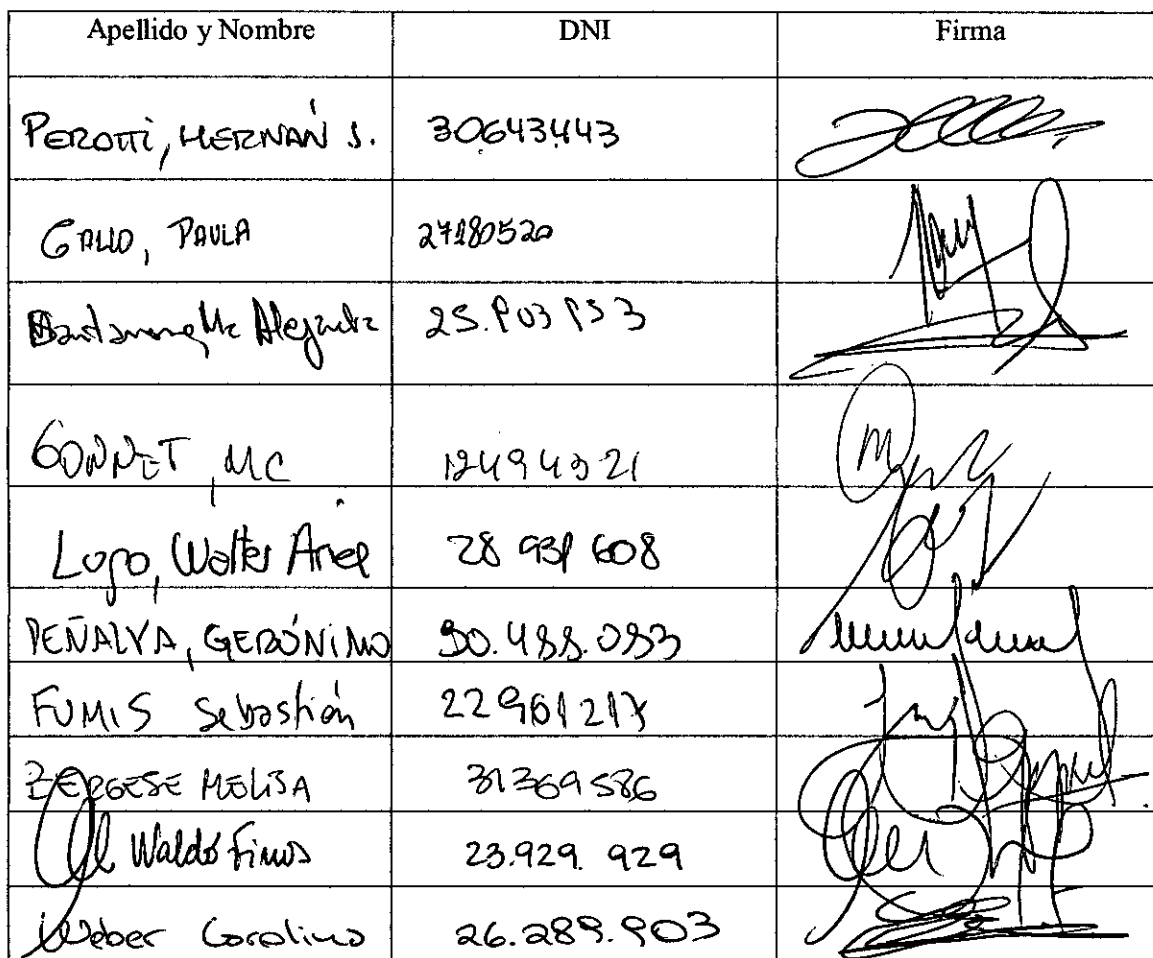 Apellido y Nombre DNI Firma
PEROTTI, HERNÁN S. 30643443
GALLO, PAULA 27180520
Alejandra
GONNET, MC
Lugo, Walter Ariel 28 931 608
PEÑALVA, GERÓNIMO 30.488.083
FUMIS Sebastián 22961217
ZERGESE MELISA 31369586
Waldo Fimos 23.929.929
Weber Carolina 26.289.903